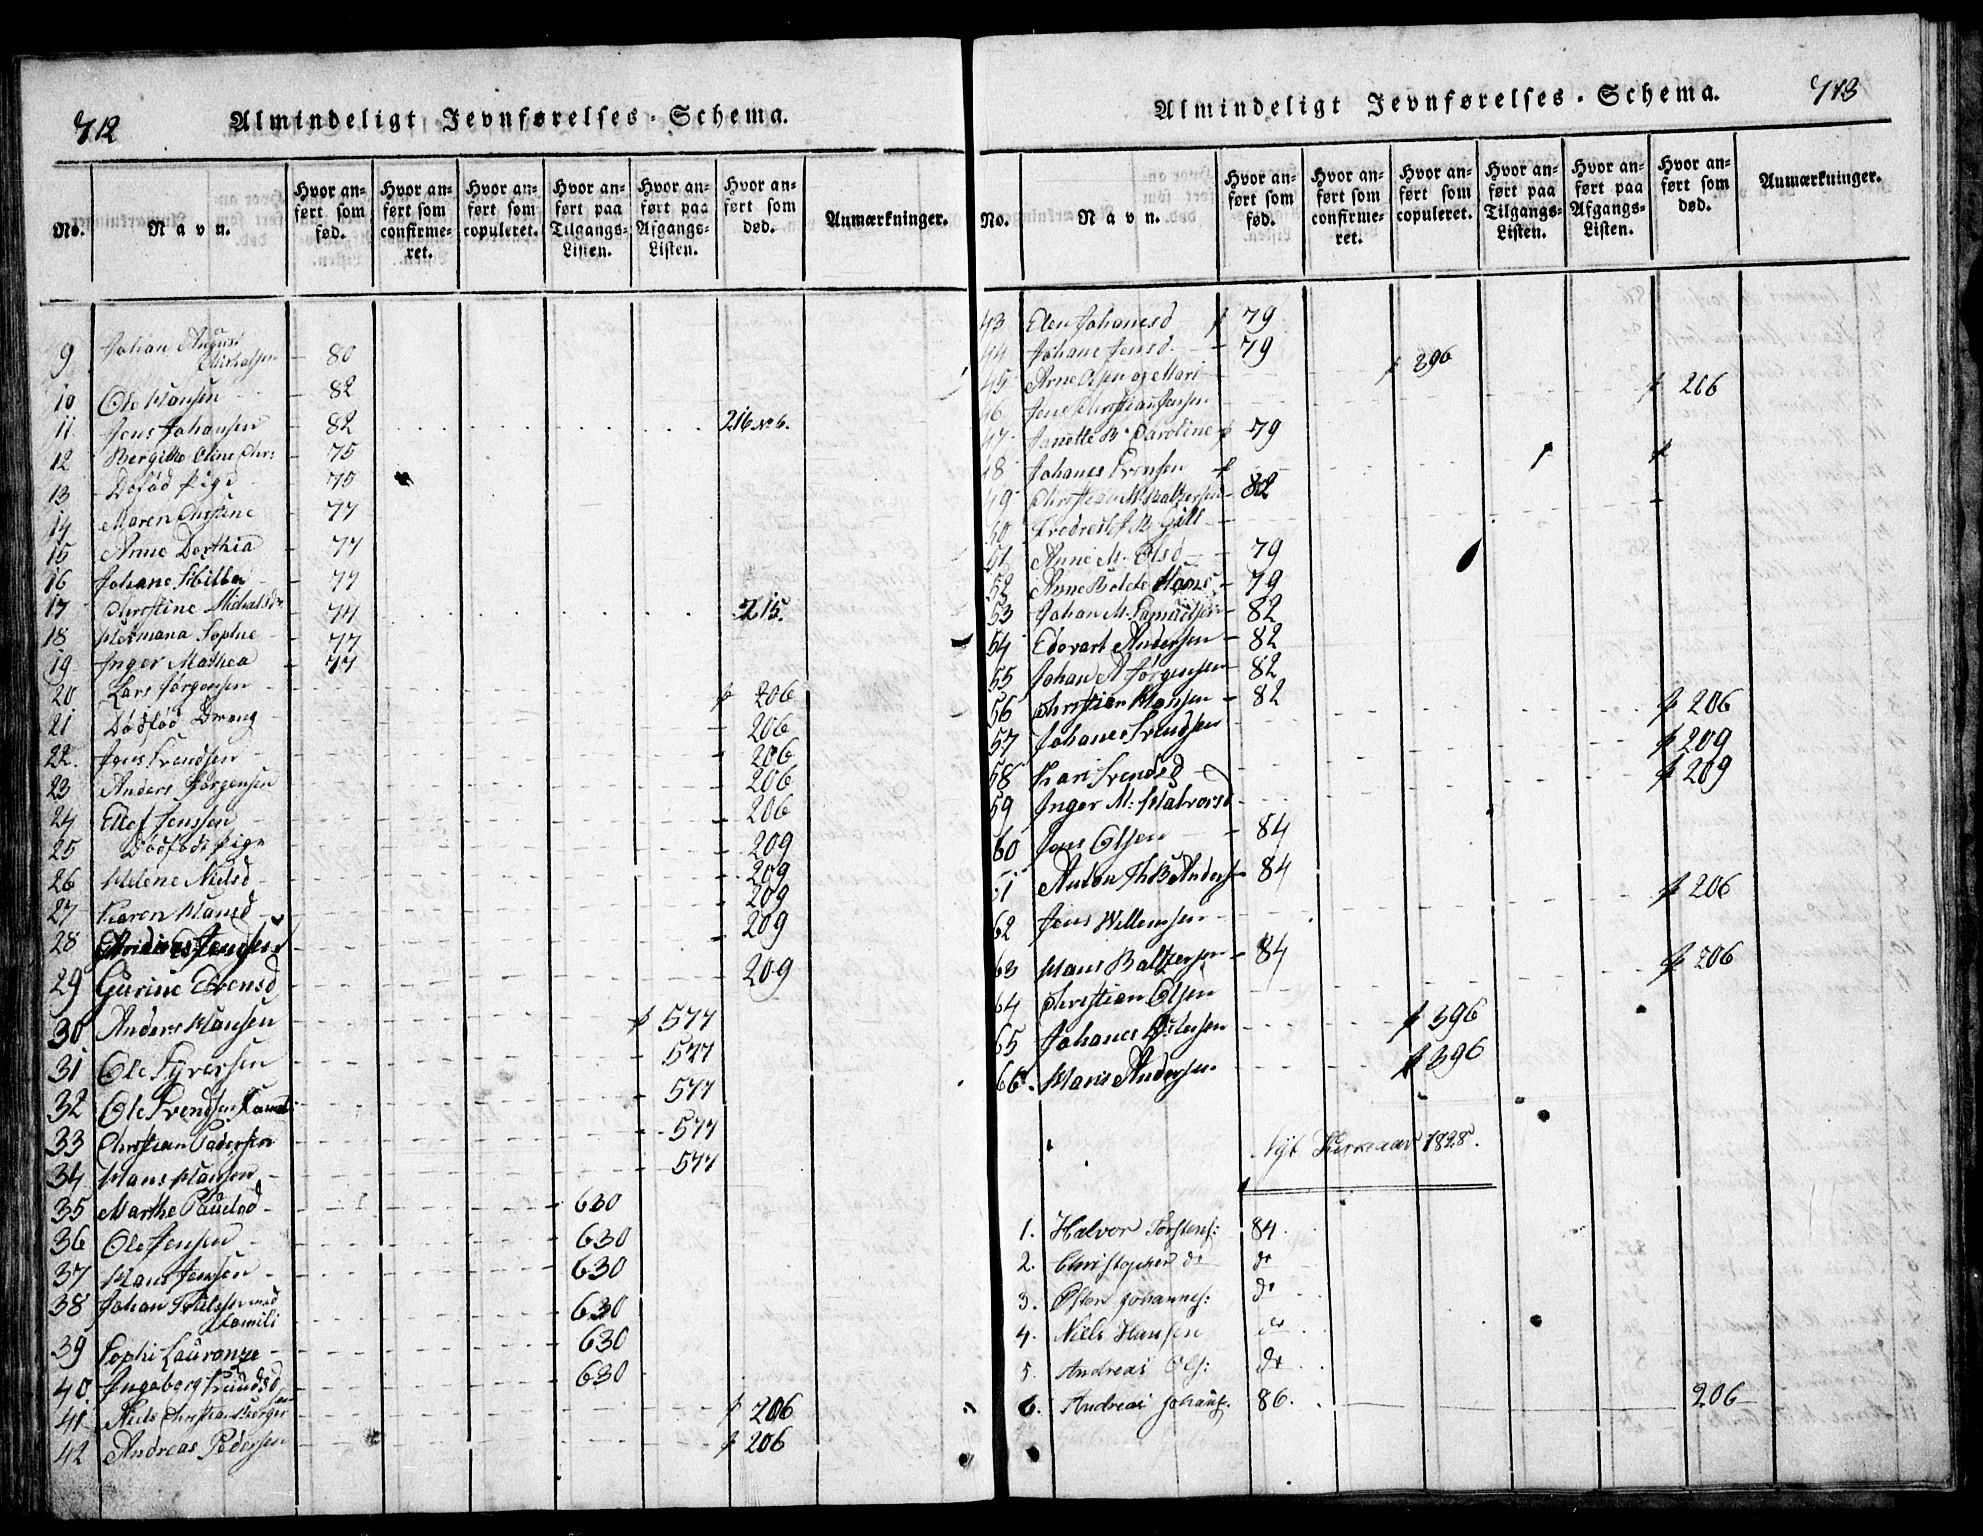 712
Almindeligt Jevnførelses-Schema.
No. Navn. Hvor anført som fød. Hvor anført som confirmeret. Hvor anført som copuleret. Hvor anført paa Tilgangs-Listen. Hvor anført paa Afgangs-Listen. Hvor anført som død. Anmærkninger.
9 Johan August
80
10 Ole Hansen 82
11 Jens Johansen 82 216 No 6.
12 Bergitte Oline Chr: 75
13 Døfød pige 75
14 Maren Christine 77
15 Anne Dorthia 77
16 Johane Sibilla 77
17 Christine Michalsdr 77 215.
18 Hermana Sophie 77
19 Inger Mathea 77
20 Lars Jørgensen p 206
21 Dødfød Dreng 206
22. Jens Svendsen 206
23 Anders Jørgensen 206
24 Ellef Jenssen 206
25 Dødfødt pige 209
26 Helene Nielsd 209
27 Karen Hansd 209
28 209
29 Gurine Evensd 209
30 Anders Hansen p 577
31 Ole Syversen 577
32 Ole Svendsen 577
33 Christian Pedersen 577
34 Hans Hansen 577
35 Marthe Paulsd 630
36 Ole Jensen 630
37 Hans Jensen 630
38 Johan Trulssen med
Famili 630
39 Sophi Lauranze 630
40 Ingeborg 630
41 Niels Christian p 206
42 Andreas Pedersen p 206
713
Almindeligt Jevnførelses-Schema.
No. Navn. Hvor anført som fød. Hvor anført som confirmeret. Hvor anført som copuleret. Hvor anført paa Tilgangs-Listen. Hvor anført paa Afgangs-Listen. Hvor anført som død. Anmærkninger.
43 Elen Johanesd p 79
44 Johane Jensd. 79
45 Arne Olsen og Mari p 396
46 Jens Christian Jensen p 206
47 Janette B. Caroline p 79
48 Johanes Svensen p
49 Christian M. Baltzersen 82
50 Fredrech
51 Anne M. Olsd 79
52 Anne Bolete Hans 79
53 Johan M. Samuelsen 82
54 Edovart Andersen 82
55 Johan A Jørgensen 82
56 Christian Hansen 82 p 206
57 Johanes Svendsen p 209
58 Kari Svendsd p 209
59 Inger M. Halvorsd
60 Jens Olsen 84
61 Anton Th B Anders 84 p 206
62 Jens Willemsen
63 Hans Baltzersen 84 p 206
64 Christian Olsen
65 Johanes p 396
66. Hans Andersen. p 396
Nyt Kirkeaar 1828.
1. Halvor Torstens: 84
2. Christopher do do
3. Østen Johannes: do
4. Niels Hansen do
5. Andreas Ols: do
6. Andreas Johans. 86. 206